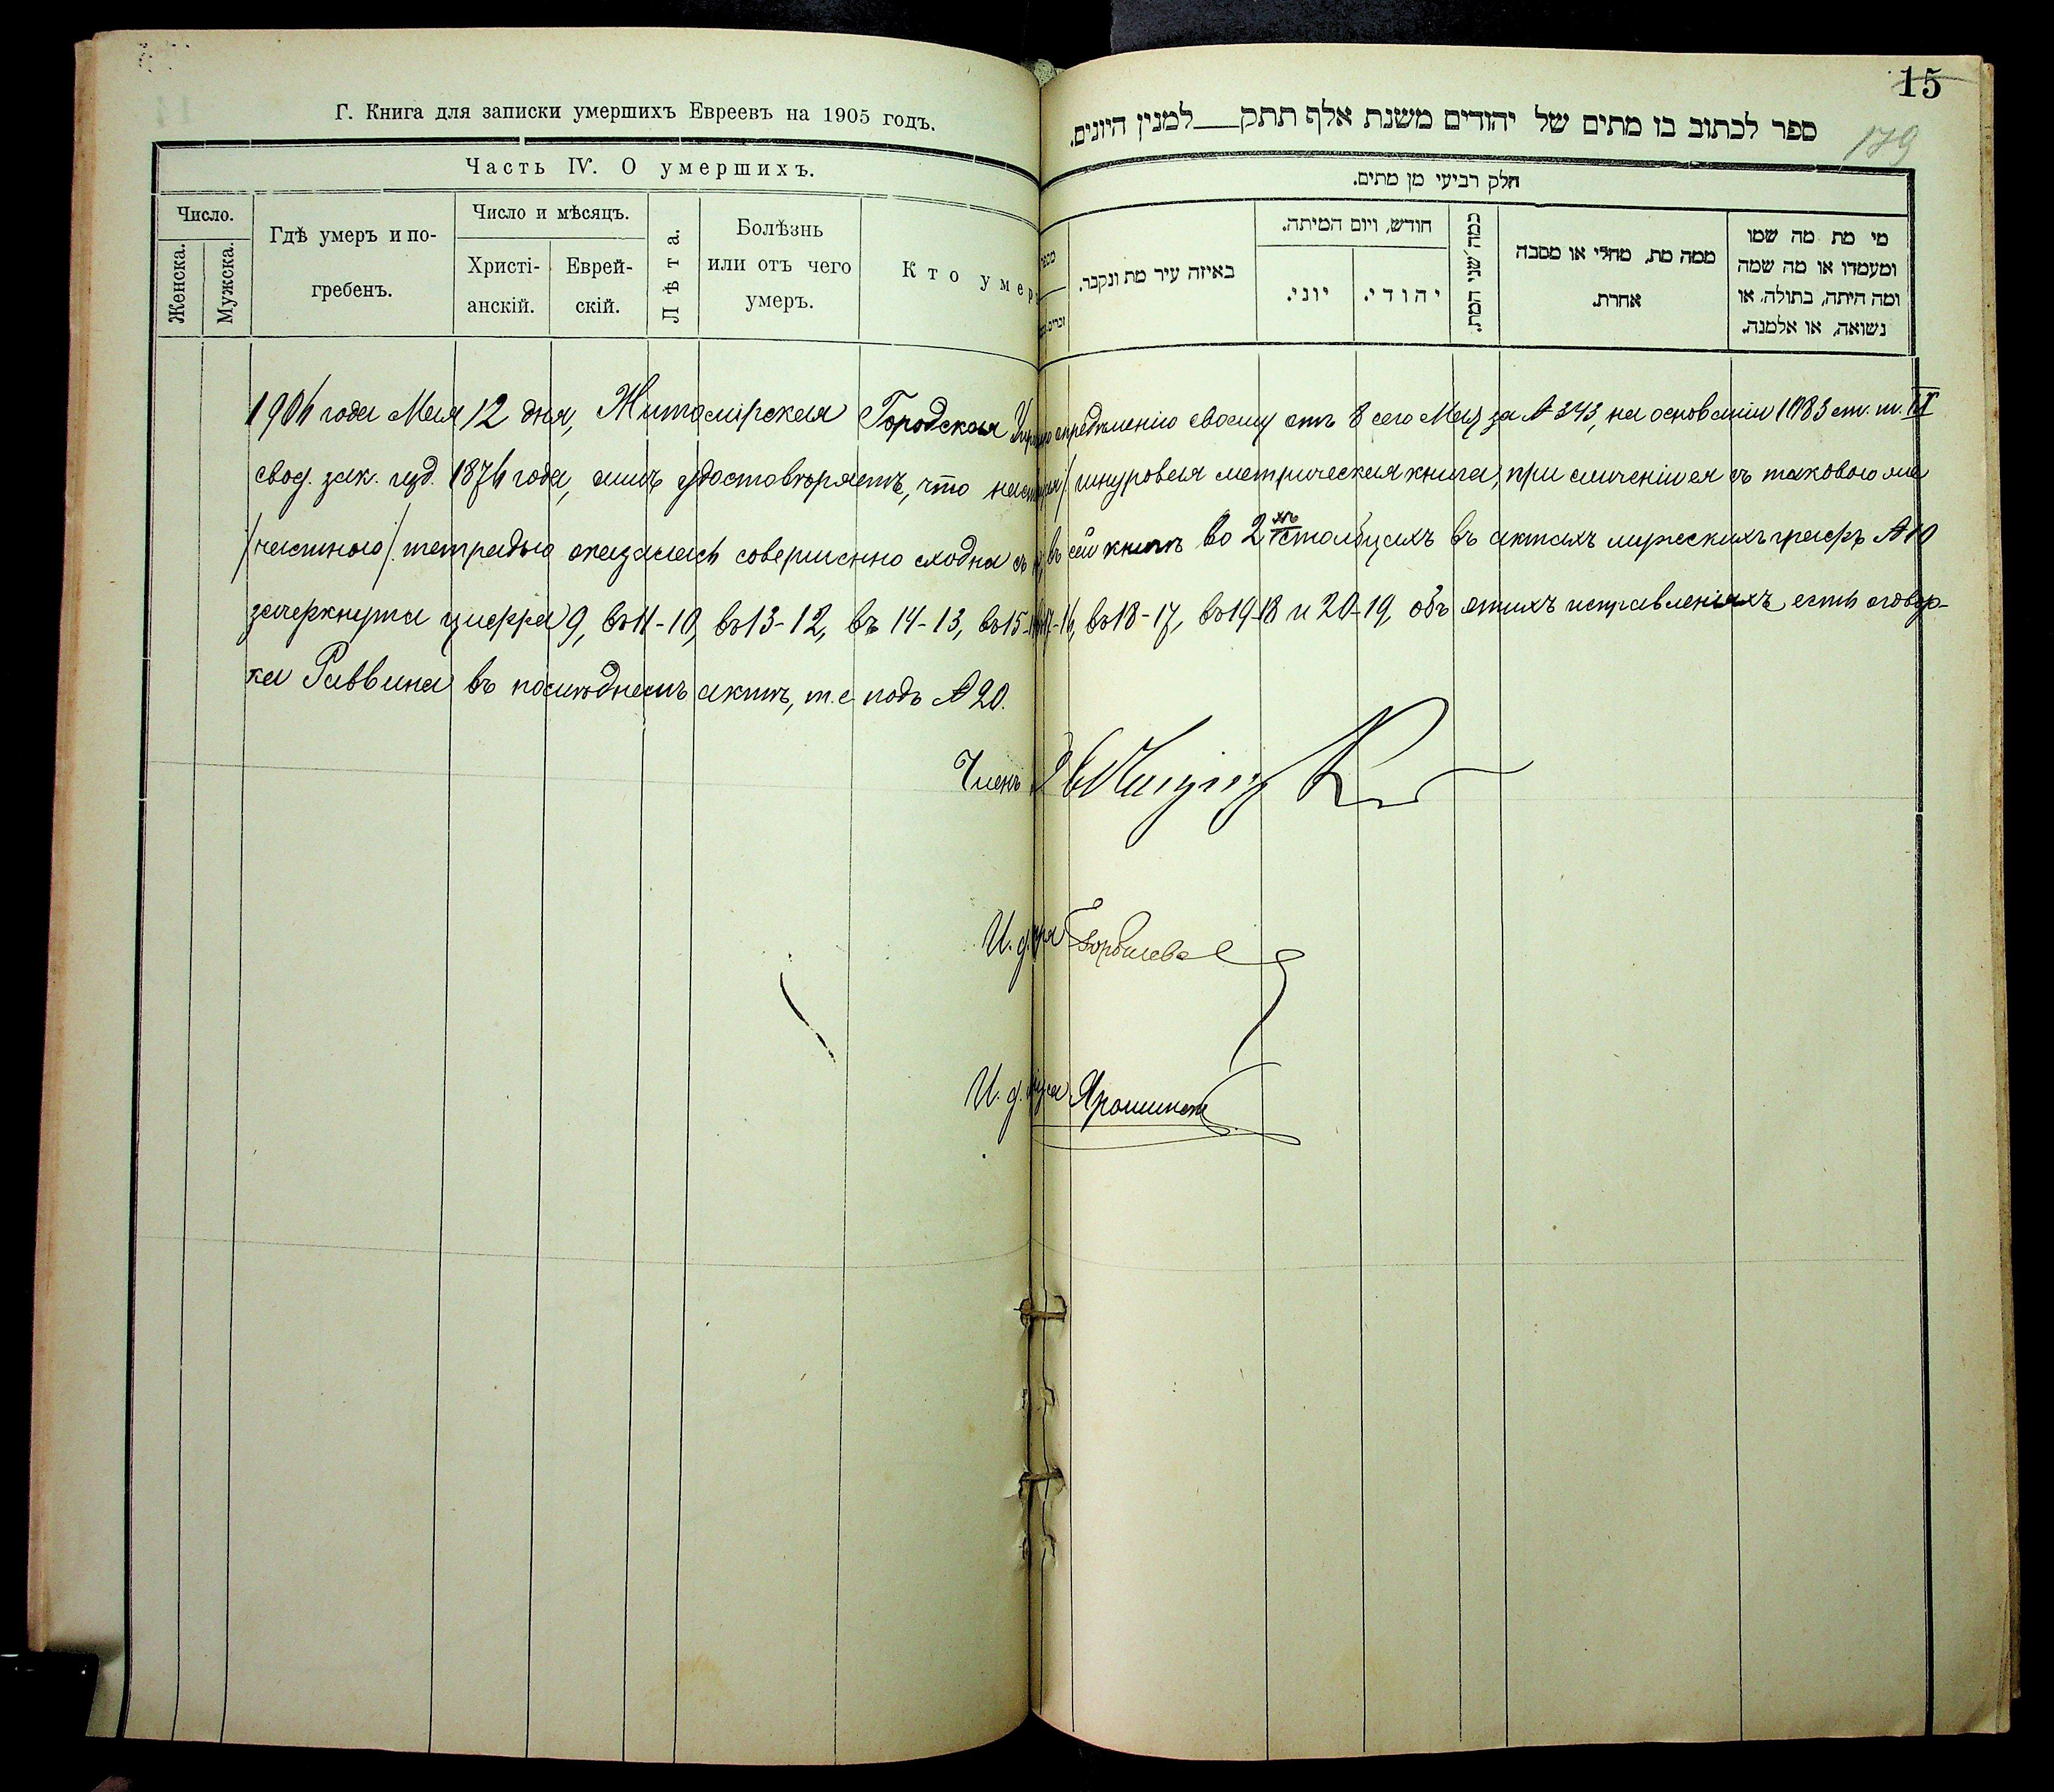 Г. Книга для записки умершихъ Евреевъ на 1905 годъ.
Часть IV. О умершихъ.
Число.
Женска.
Мужска.
Гдѣ умеръ и по-
гребенъ.
Число и мѣсяцъ.
Христі-
анскій.
Еврей-
скій.
Лѣта.
Болѣзнь
или отъ чего
умеръ.
Кто умер
15
179
ספר לכתוב בו מתים של יהודים משנת אלף תתק למנין היונים.
חלק רביעי מן מתים.
באיזה עיר מת ונקבר.
חודש, ויום המיתה.
יוני.
יהודי.
כמה שני המת.
ממה מת, מחלי או מסבה
אחרת.
מי מת מה שמו
ומעמדו או מה שמה
ומה היתה, בתולה, או
נשואה, או אלמנה.
1906 года Мая 12 дня, Житомірская Городская опредѣленію своему отъ 8 сего Мая за № 343, на основаніи 1083 ст. т. IX
свод. зак. изд. 1876 года, симъ удостовѣряетъ, что шнуровая метрическая книга, при сличеніи ея съ таковою же
/частною/ тетрадью оказалась совершенно сходна съ въ сей книгѣ во 2хъ столбцахъ въ актахъ мужскихъ графъ № 10
зачеркнута цифра 9, въ 11-10, въ 13-12, въ 14-13, въ 15- 17-16, въ 18-17, въ 19-18 и 20-19, объ этихъ исправленіяхъ есть оговор-
ка Раввина въ послѣднемъ актѣ, т. е. подъ № 20.
Членъ
И. д.
И. д.